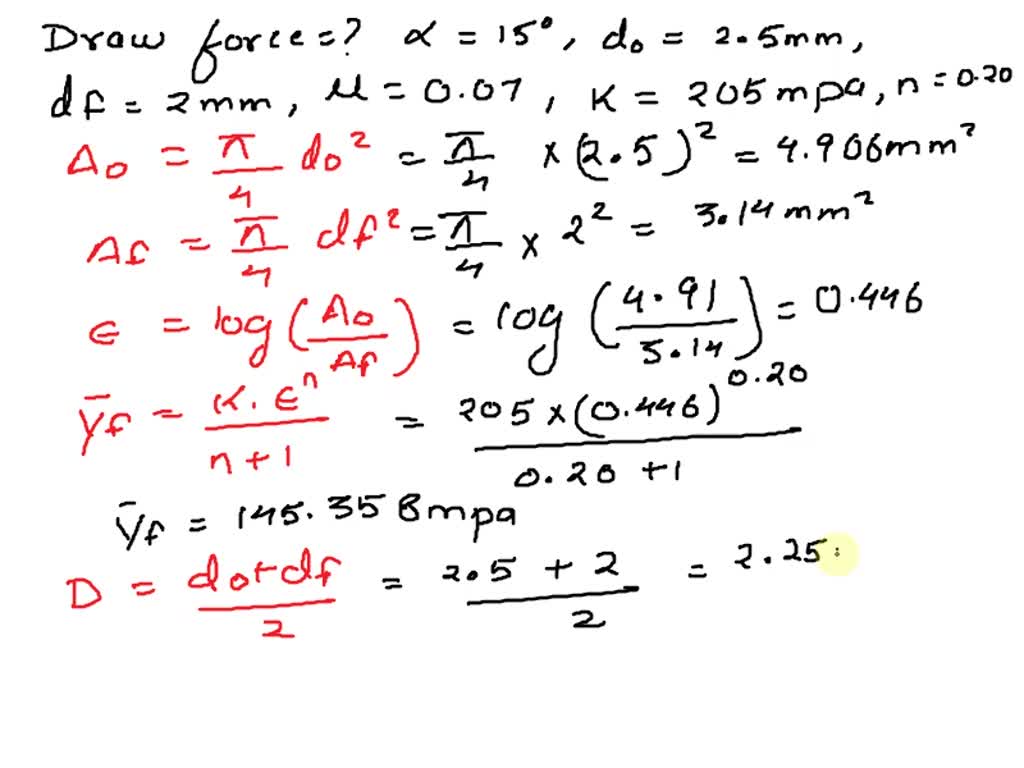 Draw force=? α = 15°, do = 2.5mm,
df = 2mm, μ = 0.07, K = 205 mpa, n = 0.20
Ao = π/4 do² = π/4 × (2.5)² = 4.906mm²
Af = π/4 df² = π/4 × 2² = 3.14 mm²
ϵ = log(Ao/Af) = log(4.91/3.14) = 0.446
Ȳf = K.ϵⁿ/n+1 = 205×(0.446)^0.20/0.20+1
Ȳf = 145.358mpa
D = do+df/2 = 2.5 + 2/2 = 2.25